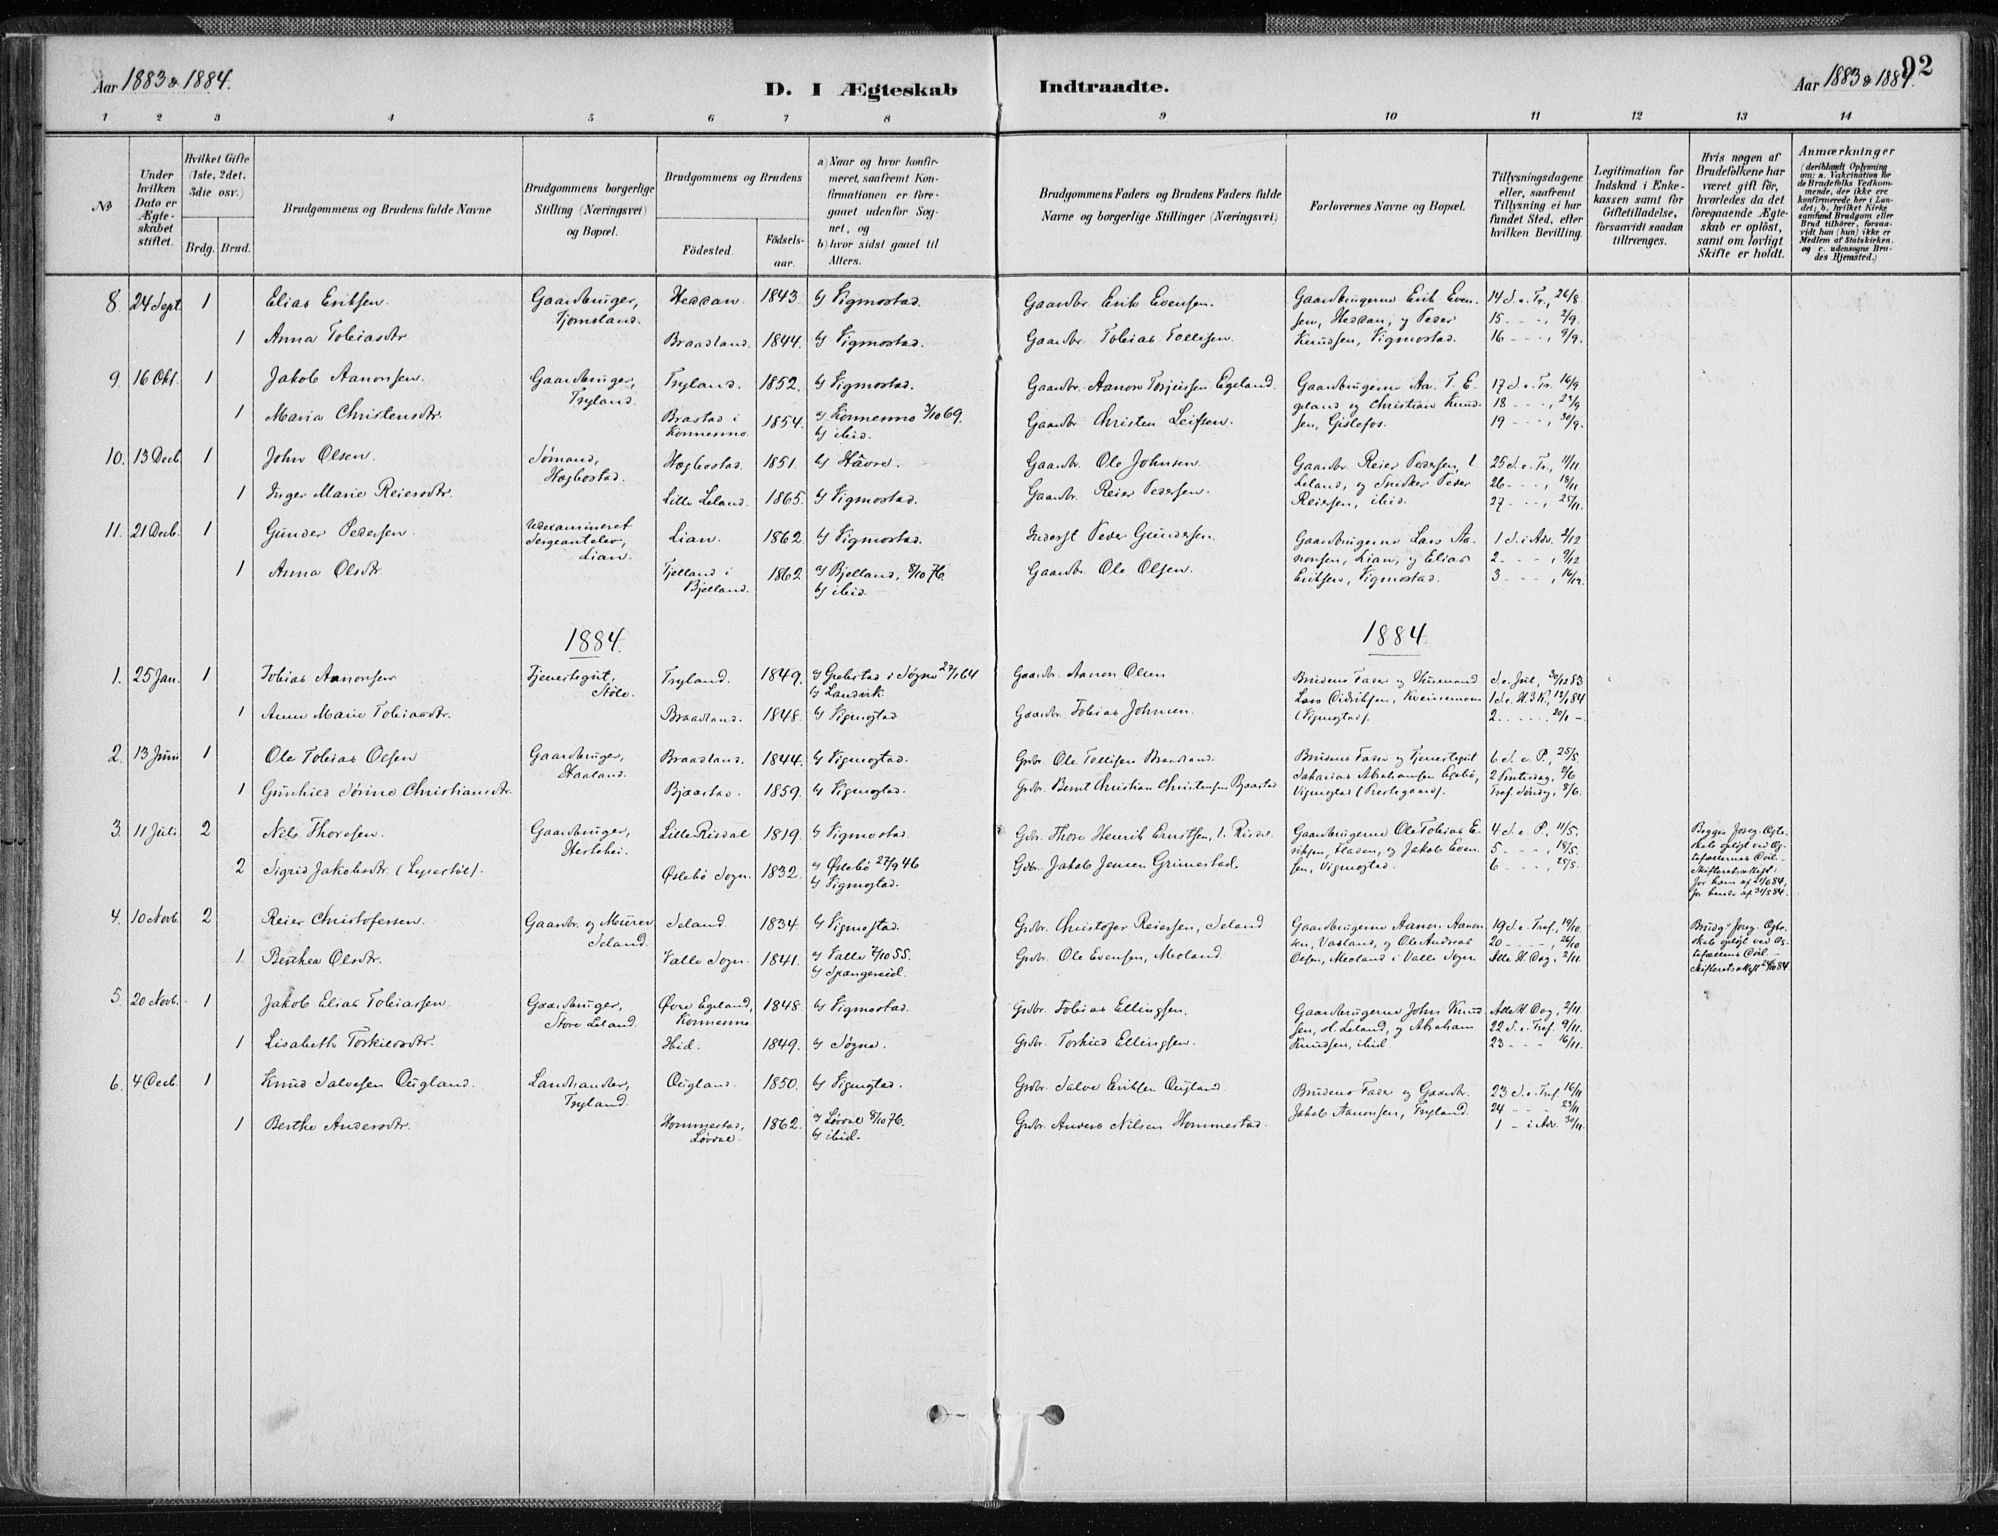 Aar 1883 & 1884.
D. I Ægteskab Indtraadte.
Aar 1883 & 1884.
92
1 2 3 4 5 6 7 8 9 10 11 12 13 14
№
Under hvilken Dato er Ægteskabet stiftet.
Hvilket Gifte (1ste, 2det, 3die osv.)
Brdg. Brud.
Brudgommens og Brudens fulde Navne
Brudgommens borgerlige Stilling (Næringsvei) og Bopæl.
Brudgommens og Brudens
Fødested. Fødselsaar.
a) Naar og hvor konfirmeret, saafremt Konfirmationen er foregaaet udenfor Sognet, og
b) hvor sidst gaaet til Alters.
Brudgommens Faders og Brudens Faders fulde Navne og borgerlige Stillinger (Næringsvei)
Forlovernes Navne og Bopæl.
Tillysningsdagene eller, saafremt Tillysning ei har fundet Sted, efter hvilken Bevilling.
Legitimation for Indskud i Enkekassen samt for Giftetilladelse, forsaavidt saadan tiltrænges.
Hvis nogen af Brudefolkene har været gift før, hvorledes da det foregaaende Ægteskab er opløst, samt om lovligt Skifte er holdt.
Anmærkninger
(deriblandt Oplysning om: a. Vakcination for de Brudefolks Vedkommende, der ikke ere konfirmerede her i Landet; b. hvilket Kirkesamfund Brudgom eller Brud tilhører, forsaavidt han (hun) ikke er Medlem af Statskirken, og c. udensogns Brudes Hjemsted.)
8. 24 Sept. 1 Elias Eriksen. Gaardbruger, Tjomsland. Heddan. 1843. b) Vigmostad. Gaardbr. Erik Evensen. Gaardbrugerne Erik Even- 14 S. e. Tr., 26/8.
sen, Heddan, og Peder 15 - - -, 2/9.
1 Anna Tobiasdtr. Braadland. 1844. b) Vigmostad. Gaardbr. Tobias Tollisen. Knudsen, Vigmostad. 16 - - -, 9/9.
9. 16 Okt. 1 Jakob Aanonsen. Gaardbruger, Tryland. Tryland. 1852. b) Vigmostad. Gaardbr. Aanon Torjussen Egeland. Gaardbrugerne Aa. T. E- 17 S. e. Tr. 16/9
geland og Christian Knud- 18 - - -, 23/9
1 Maria Christensdtr. Brastad i Konnesmo. 1854. a) Konnesmo 3/10 69. b) ibid. Gaardbr. Christen Leifsen. sen, Gislefos. 19 - - -, 30/9.
10. 13 Decb. 1 John Olsen. Sømand, Hægbostad. Hægbostad. 1851. b) Håvre. Gaardbr. Ole Johnsen. Gaardbr. Reier Pedersen, l. 25 S. e. Tr., 11/11
Leland, og Snedker Peder 26 - - -, 18/11
1 Inger Marie Reiersdtr. Lille Leland. 1865. b) Vigmostad. Gaardbr. Reier Pedersen. Reiersen, ibid. 27 - - -, 25/11.
11. 21 Decb. 1 Gunder Pedersen. Udexamineret Sergeantelev, Lian. Lian. 1862. b) Vigmostad. Inderst Peder Gundersen. Gaardbrugerne Lars Aa- 1 S. i Adv. 2/12
nonsen, Lian, og Elias 2 - - -, 9/12
1 Anna Olsdtr. Fjelland i Bjelland. 1862. a) Bjelland, 8/10 76. b) ibid. Gaardbr. Ole Olsen. Eriksen, Vigmostad. 3 - - -, 16/12.
1884. 1884.
1. 25 Jan. 1 Tobias Aanonsen Tjenestegut, Tryland. 1849. b) Landvik Gaardbr. Aanon Olsen Brudens Fader og Husmand S. e. Jul, 30/12 83
1 Anne Marie Tobiasdtr. Braadland. 1848. b) Vigmostad Gaardbr. Tobias Johnsen. (Vigmostad). 2 - - - 20/1 -
2. 13 Juni 1 Ole Tobias Olsen Gaardbruger, Haaland. Braadland. 1844. b) Vigmostad. Grdbr. Ole Tollisen Braadland. Brudens Fader og Tjenestegut 6 S. e. P., 25/5.
Sakarias Abrahamsen Egebø, 2 Pintsedag, 2/6
1 Gunhild Sørine Christiansdtr. Bjaastad. 1859. b) Vigmostad. Grdbr. Bernt Christian Christensen Bjaastad Vigmostad (Prestegaard). Tref. Søndg, 8/6.
3. 11 Juli. 2 Nils Thoresen. Gaardbruger, Hestehei. Lille Risdal 1819. b) Vigmostad. Grdbr. Thore Henrik Erntsen, l. Risdal Gaardbrugerne Ole Tobias E- 4 S. e. P., 11/5.
riksen, Fladen, og Jakob Even- 5 - - -, 18/5.
2 Sigrid Jakobsdtr. Øslebø Sogn. 1832. a) Øslebø 27/9 46 b) Vigmostad. Grdbr. Jakob Jensen Grimestad. sen, Vigmostad. 6 - - -, 25/5.
4. 10 Novb. 2 Reier Christofersen. Gaardbr. og Murer Seland. Seland. 1834. b) Vigmostad. Grdbr. Christofer Reiersen, Seland Gaardbrugerne Aanon Aanon- 19 S. e. Tref. 19/10.
sen, Vasland, og Ole Andreas 20 - - - 26/10
1 Berthea Olsdtr. Valle Sogn. 1841. a) Valle 7/10 55. b) Spangereid. Grdbr. Ole Evensen, Meoland. Olsen, Meoland i Valle Sogn Alle H. Dag, 2/11.
5. 20 Novb. 1 Jakob Elias Tobiassen. Gaardbruger, Store Leland. Øvre Egeland, Konnesmo. 1848. b) Vigmostad. Grdbr. Tobias Ellingsen. Gaardbrugerne John Knud- Alle H. Dag, 2/11.
sen, st. Leland, og Abraham 22 S. e. Tref. 9/11.
1 Lisabeth Torkildsdtr. Ibid. 1849. b) Søgne. Grdbr. Torkild Ellingsen. Knudsen, ibid. 23 - - - 16/11.
6. 4 Decb. 1 Knud Salvesen Øugland. Landhandler, Tryland. Øugland. 1850. b) Vigmostad. Grdbr. Salve Eriksen Øugland. Brudens Fader og Gaardbr. 23 S. e. Tref. 16/11
Jakob Aanonsen, Tryland. 24 - - - 23/11
1 Berthe Andersdtr. Hommestad, Løvdal. 1862. a) Løvdal 8/10 76. b) ibid. Grdbr. Anders Nilsen Hommestad. 1 - i Adv. 30/11.